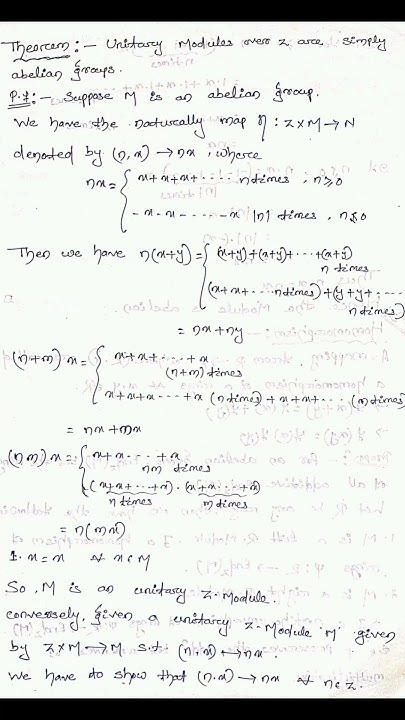 Theorem :- Unitary Modules over Z are simply
abelian groups.
P.f :- Suppose M is an abelian group.
We have the naturally map η : Z×M → N
denoted by (n, x) → nx , where
nx = { x+x+x+ ..... n times , n≥0
-x-x- .... -x |n| times , n≤0
Then we have n(x+y) = { (x+y)+(x+y)+ ... +(x+y)
n times
(x+x+ ... n times) + (y+y+ ....
n times)
= nx+ny
(n+m) x = { x+x+ .... +x
(n+m) times
x+x+x .... +x (n times) + x+x+ ... (m times)
= nx+mx
(nm) x = { x+x .... +x
nm times
(x+x+ ... +x) . (x+x ... +x)
n times m times
= n(mx)
1. x = x ∀ x∈M
So , M is an unitary Z-Module.
conversely, given a unitary Z-Module M given
by Z×M → M s.t (n, x) → nx.
We have to show that (n, x) → nx ∀ n∈Z.